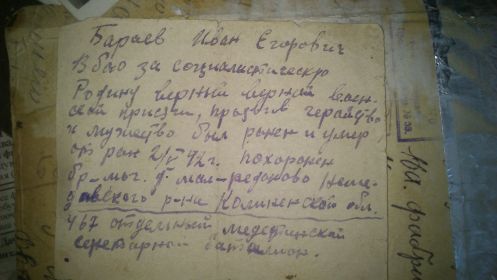 Бараев Иван Егорович
В бою за социалистическую
Родину верный верной воен-
ской присяги, проявив геройство
и мужество был ранен и умер
от ран 2/V 42г. похоронен
бр-мог. д мал-редоново
довского р-на Калиненской обл.
467 отдельный медецинский
санитарной баталион.
На. фабри